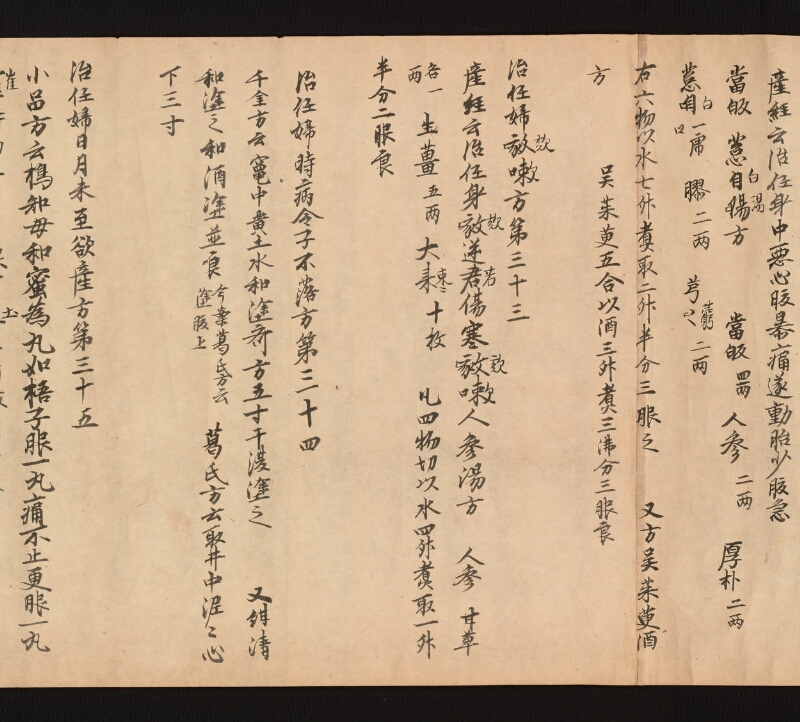 産経云治任身中悪心腹暴痛遂動胎少腹急
當皈葱白湯方 當皈四両 人参二両 厚朴二両
葱白一虎 膠二両 芎藭二両
右六物以水七升煮取二升半分三服之 又方吴茱萸酒
方 吴茱萸五合以酒三升煮三沸分三服良
治任婦欬嗽方第三十三
産経云治任身欬逆若傷寒欬嗽人参湯方 人参 甘草
各一両 生薑五両 大枣十枚 凡四物切以水四升煮取一升
半分二服良
治任婦時病令子不落方第三十四
千金方云竃中黄土水和塗齊方五寸干復塗之 又
和塗之和酒塗並良 今案葛氏方云塗腹上 葛氏方云取井中泥〻心
下三寸
治任婦日月未至欲産方第三十五
小品方云搗知母和蜜為丸如梧子服一丸痛不止更服一丸